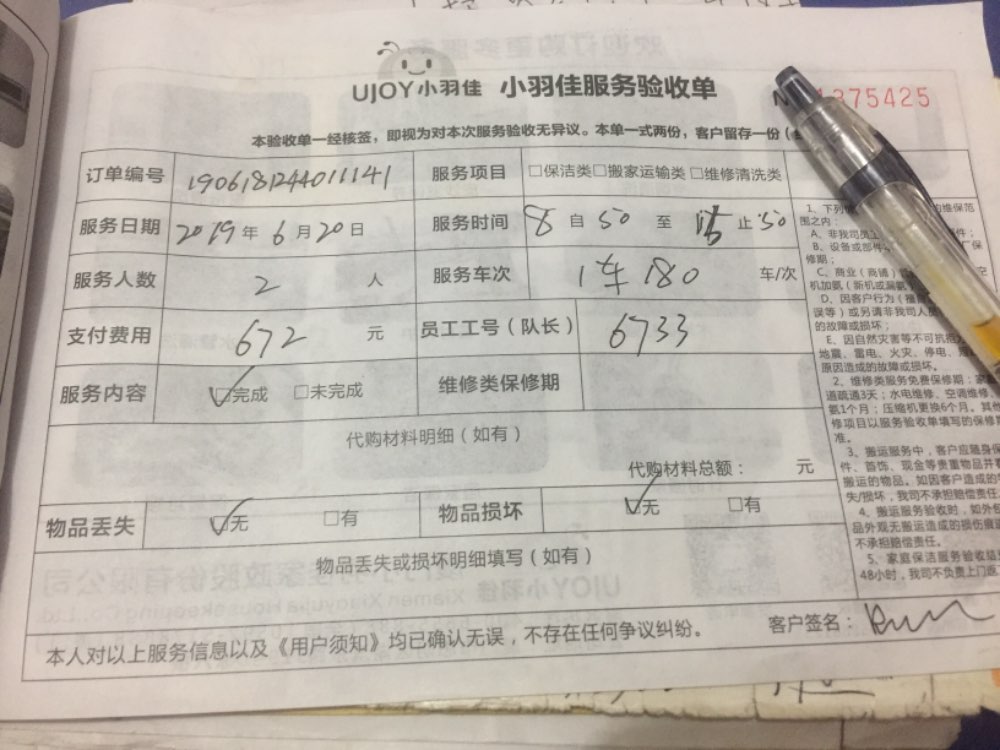 UJOY小羽佳 小羽佳服务验收单
1375425
本验收单一经核签，即视为对本次服务验收无异议。本单一式两份，客户留存一份（
订单编号 190618124401141 服务项目 □保洁类□搬家运输类□维修清洗类
服务日期 2019年6月20日 服务时间 8自50至 止50
服务人数 2人 服务车次 1车180 车/次
支付费用 672元 员工工号（队长） 6733
服务内容 ☑完成 □未完成 维修类保修期
代购材料明细（如有）
代购材料总额： 元
物品丢失 ☑无 □有 物品损坏 ☑无 □有
物品丢失或损坏明细填写（如有）
本人对以上服务信息以及《用户须知》均已确认无误，不存在任何争议纠纷。 客户签名：
1、下列 的维保范
围之内：
A、非我司员工 件；
B、设备或部件 厂保
修期；
C、商业（商铺） 空
机加氨（新机或漏氨
D、因客户行为（擅
误等）或另请非我司人员
的故障或损坏；
E、因自然灾害等不可抗
地震、雷电、火灾、停电、
原因造成的故障或损坏。
2、维修类服务免费保修期：家
道疏通3天；水电维修、空调维修、
氨1个月；压缩机更换6个月。其他
修项目以服务验收单填写的保修
准。
3、搬运服务中，客户应随身保
件、首饰、现金等贵重物品并
搬运的物品。如因客户造成的
失/损坏，我司不承担赔偿责任。
4、搬运服务验收时，如外包
品外观无搬运造成的损伤痕迹
不承担赔偿责任。
5、家庭保洁服务验收结
48小时，我司不负责上门返